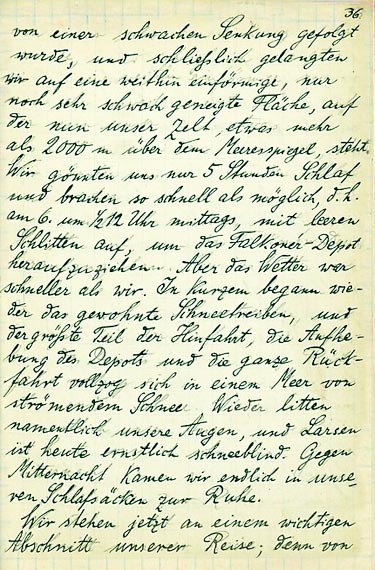 36.
von einer schwachen Senkung gefolgt
wurde, und schließlich gelangten
wir auf eine weithin einförmige, nur
noch sehr schwach geneigte Fläche, auf
der nun unser Zelt, etwas mehr
als 2000 m über dem Meeresspiegel, steht.
Wir gönnten uns nur 5 Stunden Schlaf
und brachen so schnell als möglich, d.h.
am 6. um ½12 Uhr mittags, mit leeren
Schlitten auf, um das Falkoner-Depot
heraufzuziehen. Aber das Wetter war
schneller als wir. In kurzem begann wie-
der das gewohnte Schneetreiben, und
der größte Teil der Hinfahrt, die Aufhe-
bung des Depots und die ganze Rück-
fahrt vollzog sich in einem Meer von
strömendem Schnee. Wieder litten
namentlich unsere Augen, und Larsen
ist heute ernstlich schneeblind. Gegen
Mitternacht kamen wir endlich in unse-
ren Schlafsäcken zur Ruhe.
Wir stehen jetzt an einem wichtigen
Abschnitt unserer Reise; denn von